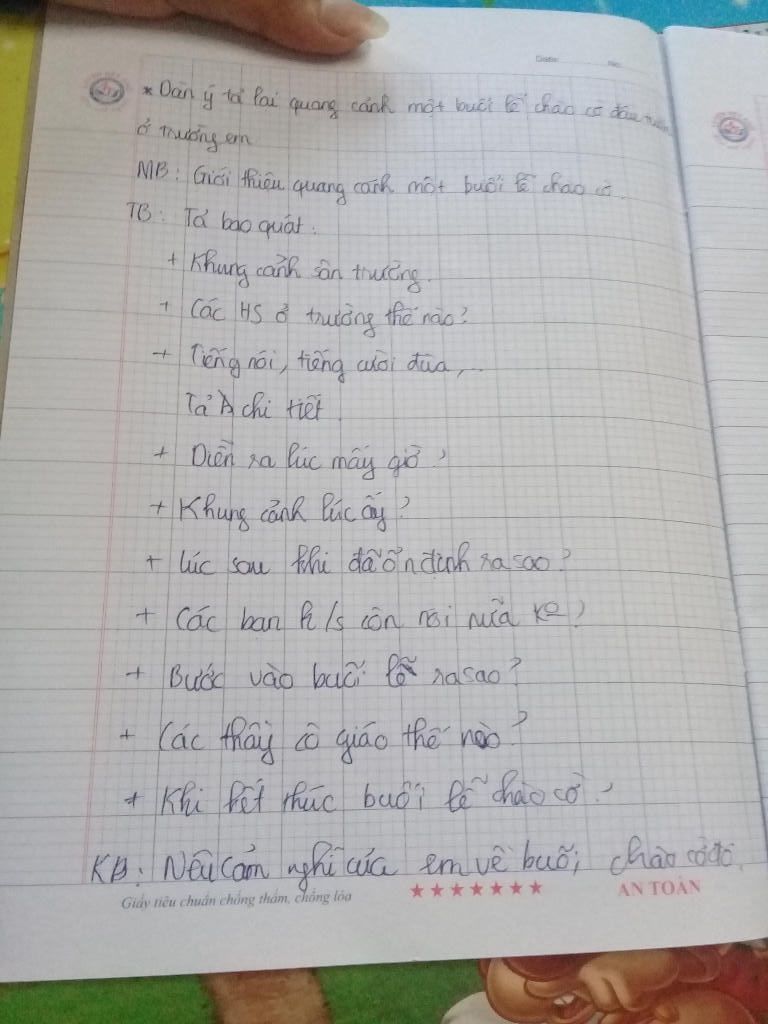 Date: No:
* Dàn ý tả lại quang cảnh một buổi lễ chào cờ đầu tuần
ở trường em
MB: Giới thiệu quang cảnh một buổi lễ chào cờ.
TB: Tả bao quát:
+ Khung cảnh sân trường.
+ Các HS ở trường thế nào?
+ Tiếng nói, tiếng cười đùa,...
Tả chi tiết
+ Diễn ra lúc mấy giờ?
+ Khung cảnh lúc ấy?
+ Lúc sau khi đã ổn định ra sao?
+ Các bạn h/s còn nói nữa ko?
+ Bước vào buổi lễ ra sao?
+ Các thầy cô giáo thế nào?
+ Khi kết thúc buổi lễ chào cờ?
KB: Nêu cảm nghĩ của em về buổi chào cờ đó.
Giấy tiêu chuẩn chống thấm, chống lóa ★★★★★★★ AN TOÀN